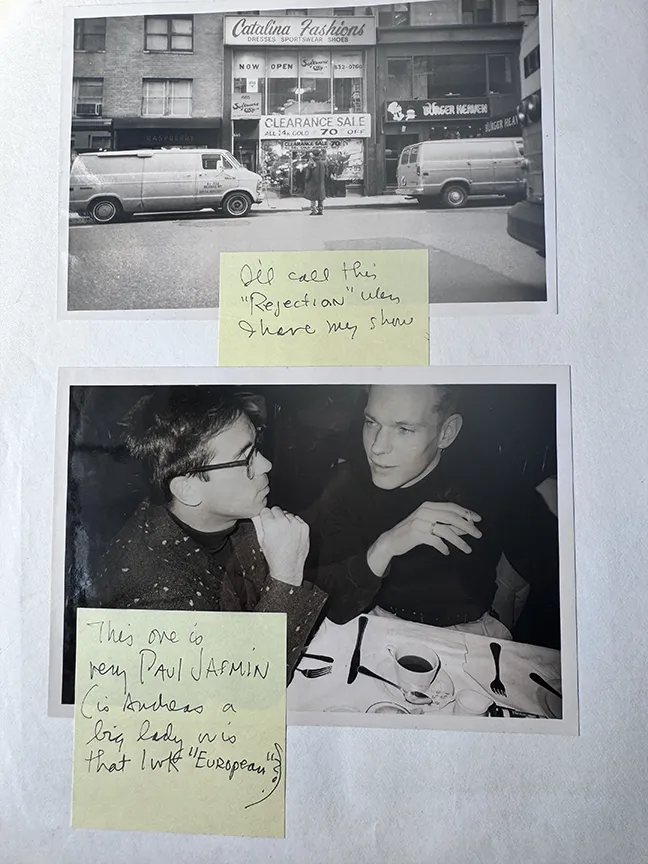 Catalina Fashions
DRESSES SPORTSWEAR SHOES
NOW OPEN
832-0760
CLEARANCE SALE
ALL 14K GOLD 70% OFF
CLEARANCE SALE 70%
BURGER HEAVEN
BURGER HEAV
I'll call this
"Rejection" when
I have my show
This one is
very PAUL JASMIN
(is Andreas a
big lady or is
that look "European"?)